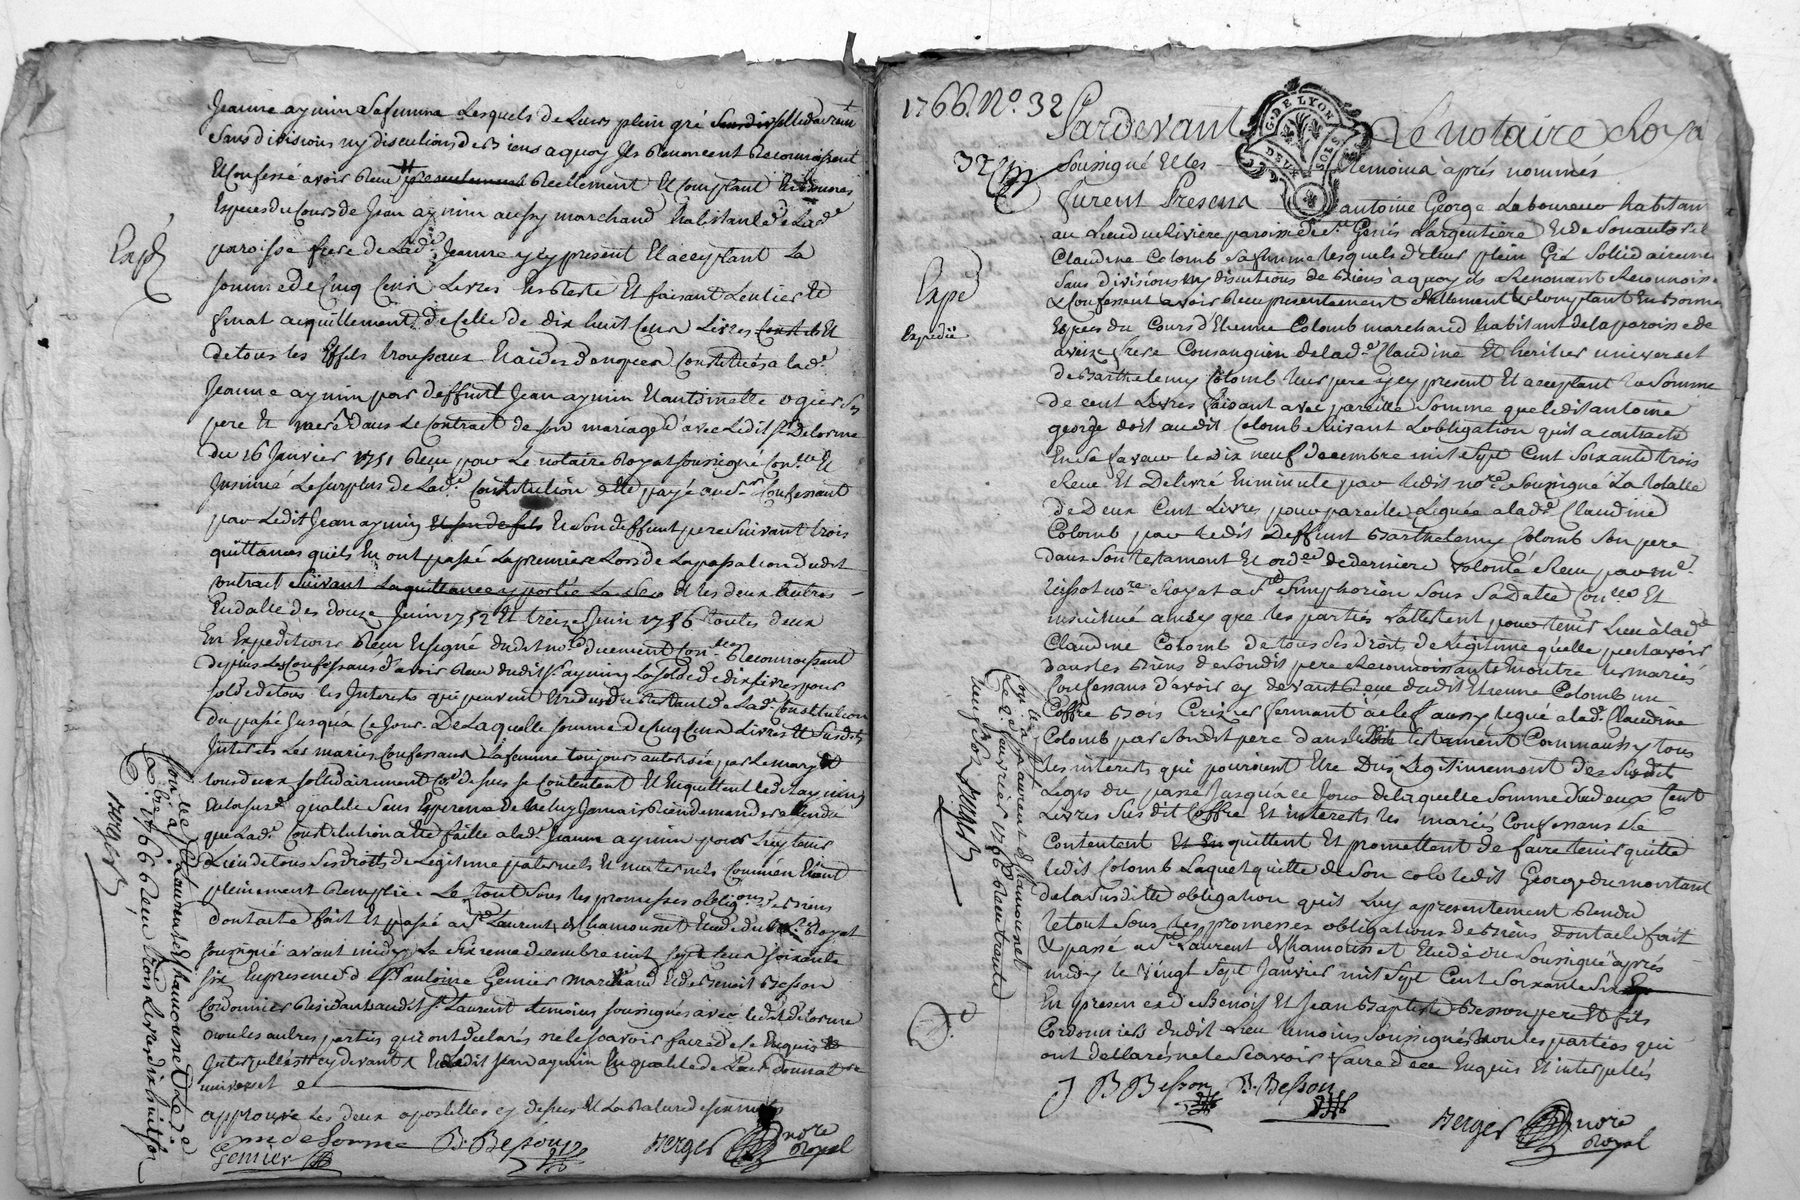 Jeanne aymin sa femme Lesquels de Leurs plein gré
sans divisions ny discutions de Biens a quoy Ils Renoncent Reconnoissent
et Confessé avoir Receu presentement Reellement et Comptant en bonnes
Especes du Cours de Jean aymin aussy marchand habitant de Lad.e
paroisse frere de Lad.e Jeanne y cy present et acceptant La
somme de Cinq Cens Livres et faisant L'entier et
finat acquittement de Celle de dix huit Cens Livres
de tous les Effets trousseaux Constitués a lad.e
Jeanne aymin par deffunt Jean aymin et antoinette ogier ses
pere et mere dans Le Contrat de son mariage d'avec Ledit S.r Delorme
du 16 Janvier 1751 Receu par Le notaire Royal soussigné
Insinué Le surplus de Lad.e Constitution Confessant
par Ledit Jean aymin et son deffunt pere suivant trois
quittances qu'ils En ont passé La premiere Lors de La passation dudit
Contrat suivant La quittance y portée et les deux autres
En datte des douze Juin 1752 et treize Juin 1756 toutes deux
En Expeditions Receu et signé dudit no.re duement Reconnoissent
de plus et Confessans d'avoir Receu dudit S.r aymin La solde de dix Livres pour
solde de tous les Interets qui peuvent de Lad.e Constitution
du passé Jusqua Ce Jour De Laquelle somme de Cinq Cens Livres et susdits
Interets Les mariés Confessans La femme toujours autorisée par Le mary
tous deux sollidairement se Contentent Et En quittent Led. aymin
En La susd.e qualité sans Esperence de Luy Jamais Rien demander
que Lad.e Constitution a Eté faitte a lad.e Jeanne aymin pour Luy tenir
Lieu de tous ses droits de Legitime paternels Et maternels Comme En Etant
pleinement Remplie. Le tout sous les promesses obligons de Biens
dont acte fait Et passé a St. Laurent de Chamousset Etude du no.re Royal
soussigné avant midy Le sixieme decembre mil sept Cens soixante
six En presence de S.r antoine Genier marchand Et de Benoit Besson
Cordonnier Residants audit St. Laurent temoins soussignés avec Ledit Delorme
non les autres parties qui ont declarés ne le scavoir faire de ce Enquis
Interpellés Ledit Jean aymin En qualité de donnat.re
universel
approuvé Les deux apostilles cy dessus Et La Rature de
m delorme B. Besson Berger no.re Royal
Genier
Expé
Con.lé a St. Laurent de Chamousset Le
1766 Receu trois Livres dix huit sols
Berger
1766. No. 32
Pardevant Le notaire Royal
32
G. DE LYON
DEUX SOLS
soussigné Et les temoins après nommés
furent Presens antoine George Laboureur habitant
au Lieu du Riviere paroisse de St. Genis L'argentiere Et de son autorité
Claudine Colomb sa femme lesquels de leur plein Gré Sollidairement
sans divisions ny discutions de Biens à quoy ils Renonçant Reconnoissent
& Confessent avoir Receu presentement Reellement & Comptant En Bonne
Especes du Cours d'Etienne Colomb marchand habitant de la paroisse de
aveize frere Consanguin de lad.e Claudine Et heritier universel
de Barthelemy Colomb leur pere y cy present Et acceptant la somme
de cent Livres faisant avec pareille somme que ledit antoine
george doit audit Colomb suivant L'obligation quil a contracté
En sa faveur le dix neuf decembre mil sept Cent soixante trois
Receu Et Delivré En minute par ledit no.re soussigné La totalle
de Deux Cent Livres pour pareille Leguée a lad.e Claudine
Colomb par ledit Deffunt Barthelemy Colomb son pere
dans son testament Et ord.ce de derniere volonté Receu par m.e
no.re Royal a St. Simphorien sous sa date Con.lé Et
insinué ainsy que les parties L'attestent pour tenir Lieu à lad.e
Claudine Colomb de tous ses droits de Legitime quelle peut avoir
dans les Biens de sondit pere Reconnoissants En outre les mariés
Confessans d'avoir cy devant Receu dudit Etienne Colomb un
Coffre Bois Cerizier fermant à clef aussy legué a lad.e Claudine
Colomb par sondit pere dans testament Comm'aussy tous
les interets qui pouroient Etre Dus Legitimement des susdits
Legs du passé Jusqua ce Jour de laquelle somme de deux Cent
Livres susdit Coffre Et interets les mariés Confessans se
Contentent quittent Et promettent de faire tenir quitte
ledit Colomb Lequel quitte de son coté ledit George du montant
de la susditte obligation quil Luy a presentement Rendu
le tout sous les promesses obligations de Biens dont acte fait
& passé a St. Laurent de Chamousset Etude du soussigné après
midy le vingt sept Janvier mil sept Cent soixante six
En presence de Benoit Et Jean Baptiste Besson pere Et fils
Cordonniers dudit Lieu temoins soussignés non les parties qui
ont dellarés ne le Scavoir faire de ce Enquis Et interpellés
J B Besson B. Besson
Berger no.re Royal
Expé
Expedié
Con.lé a St. Laurent de Chamousset
Le 2. fevrier 1766 Receu trente
neuf sols Berger